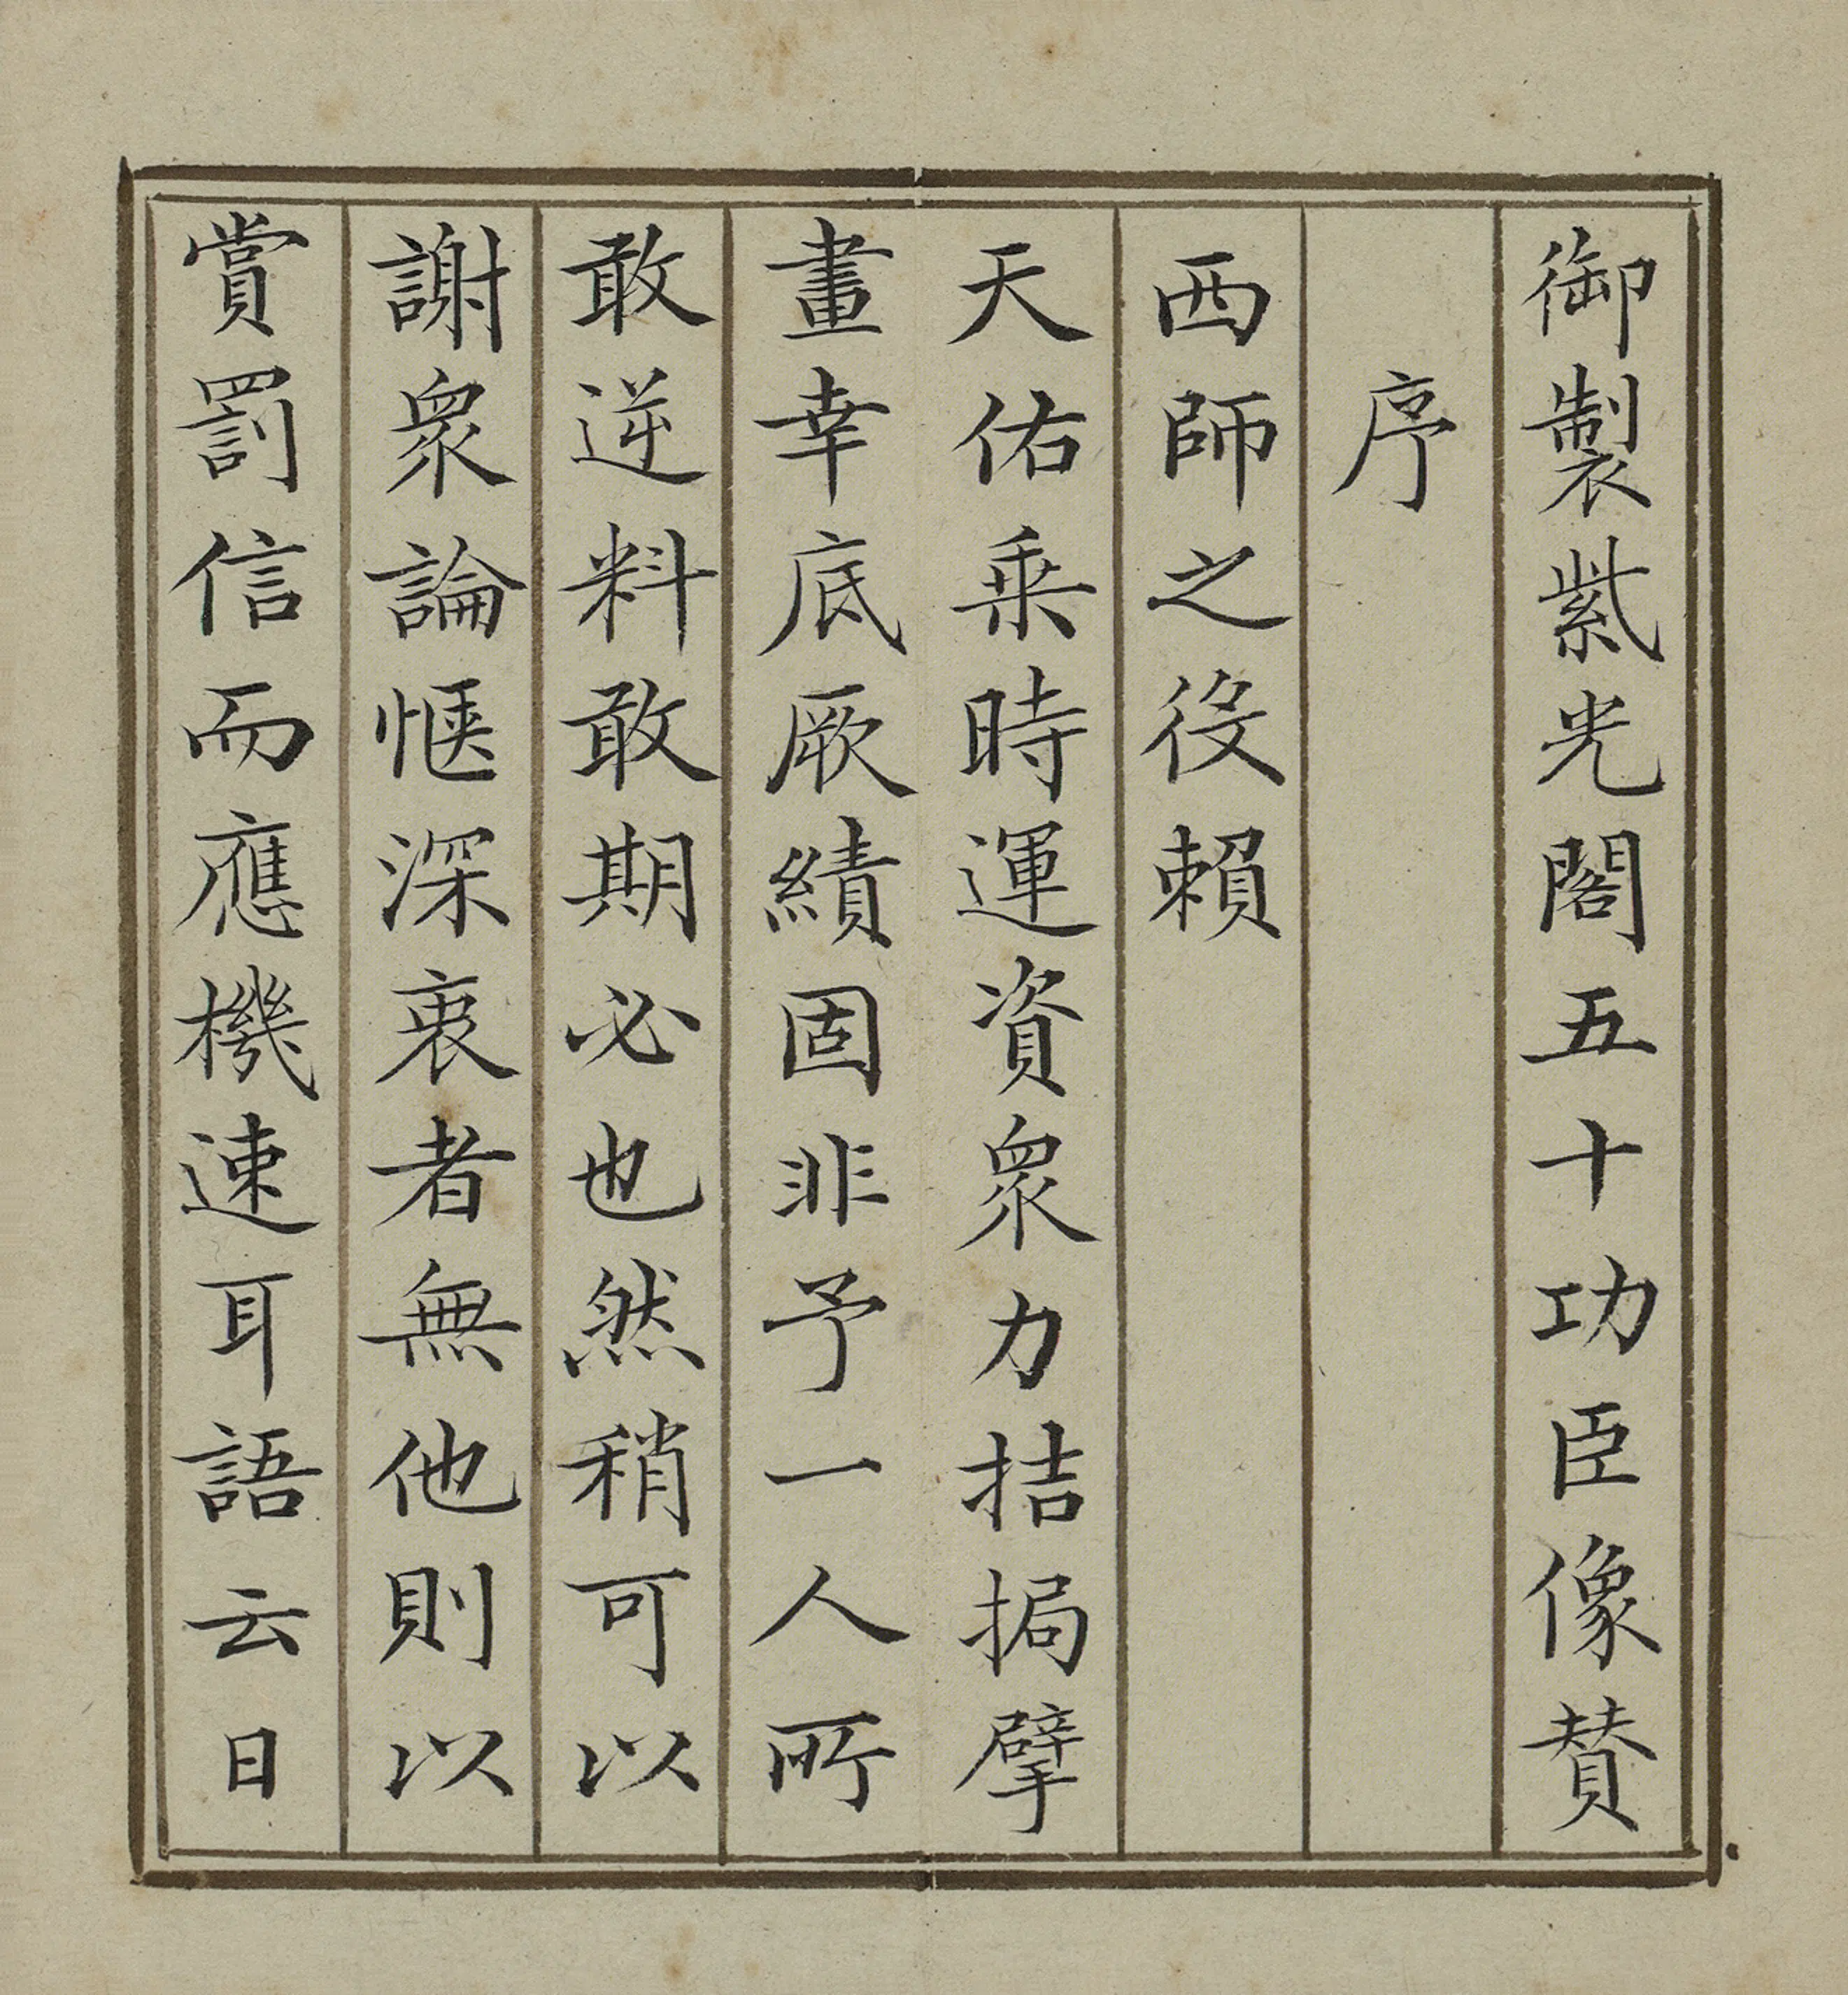 御製紫光閣五十功臣像贊
序
西師之役賴
天佑乗時運資衆力拮挶擘
畫幸底厥績固非予一人所
敢逆料敢期必也然稍可以
謝衆論愜深衷者無他則以
賞罰信而應機速耳語云日